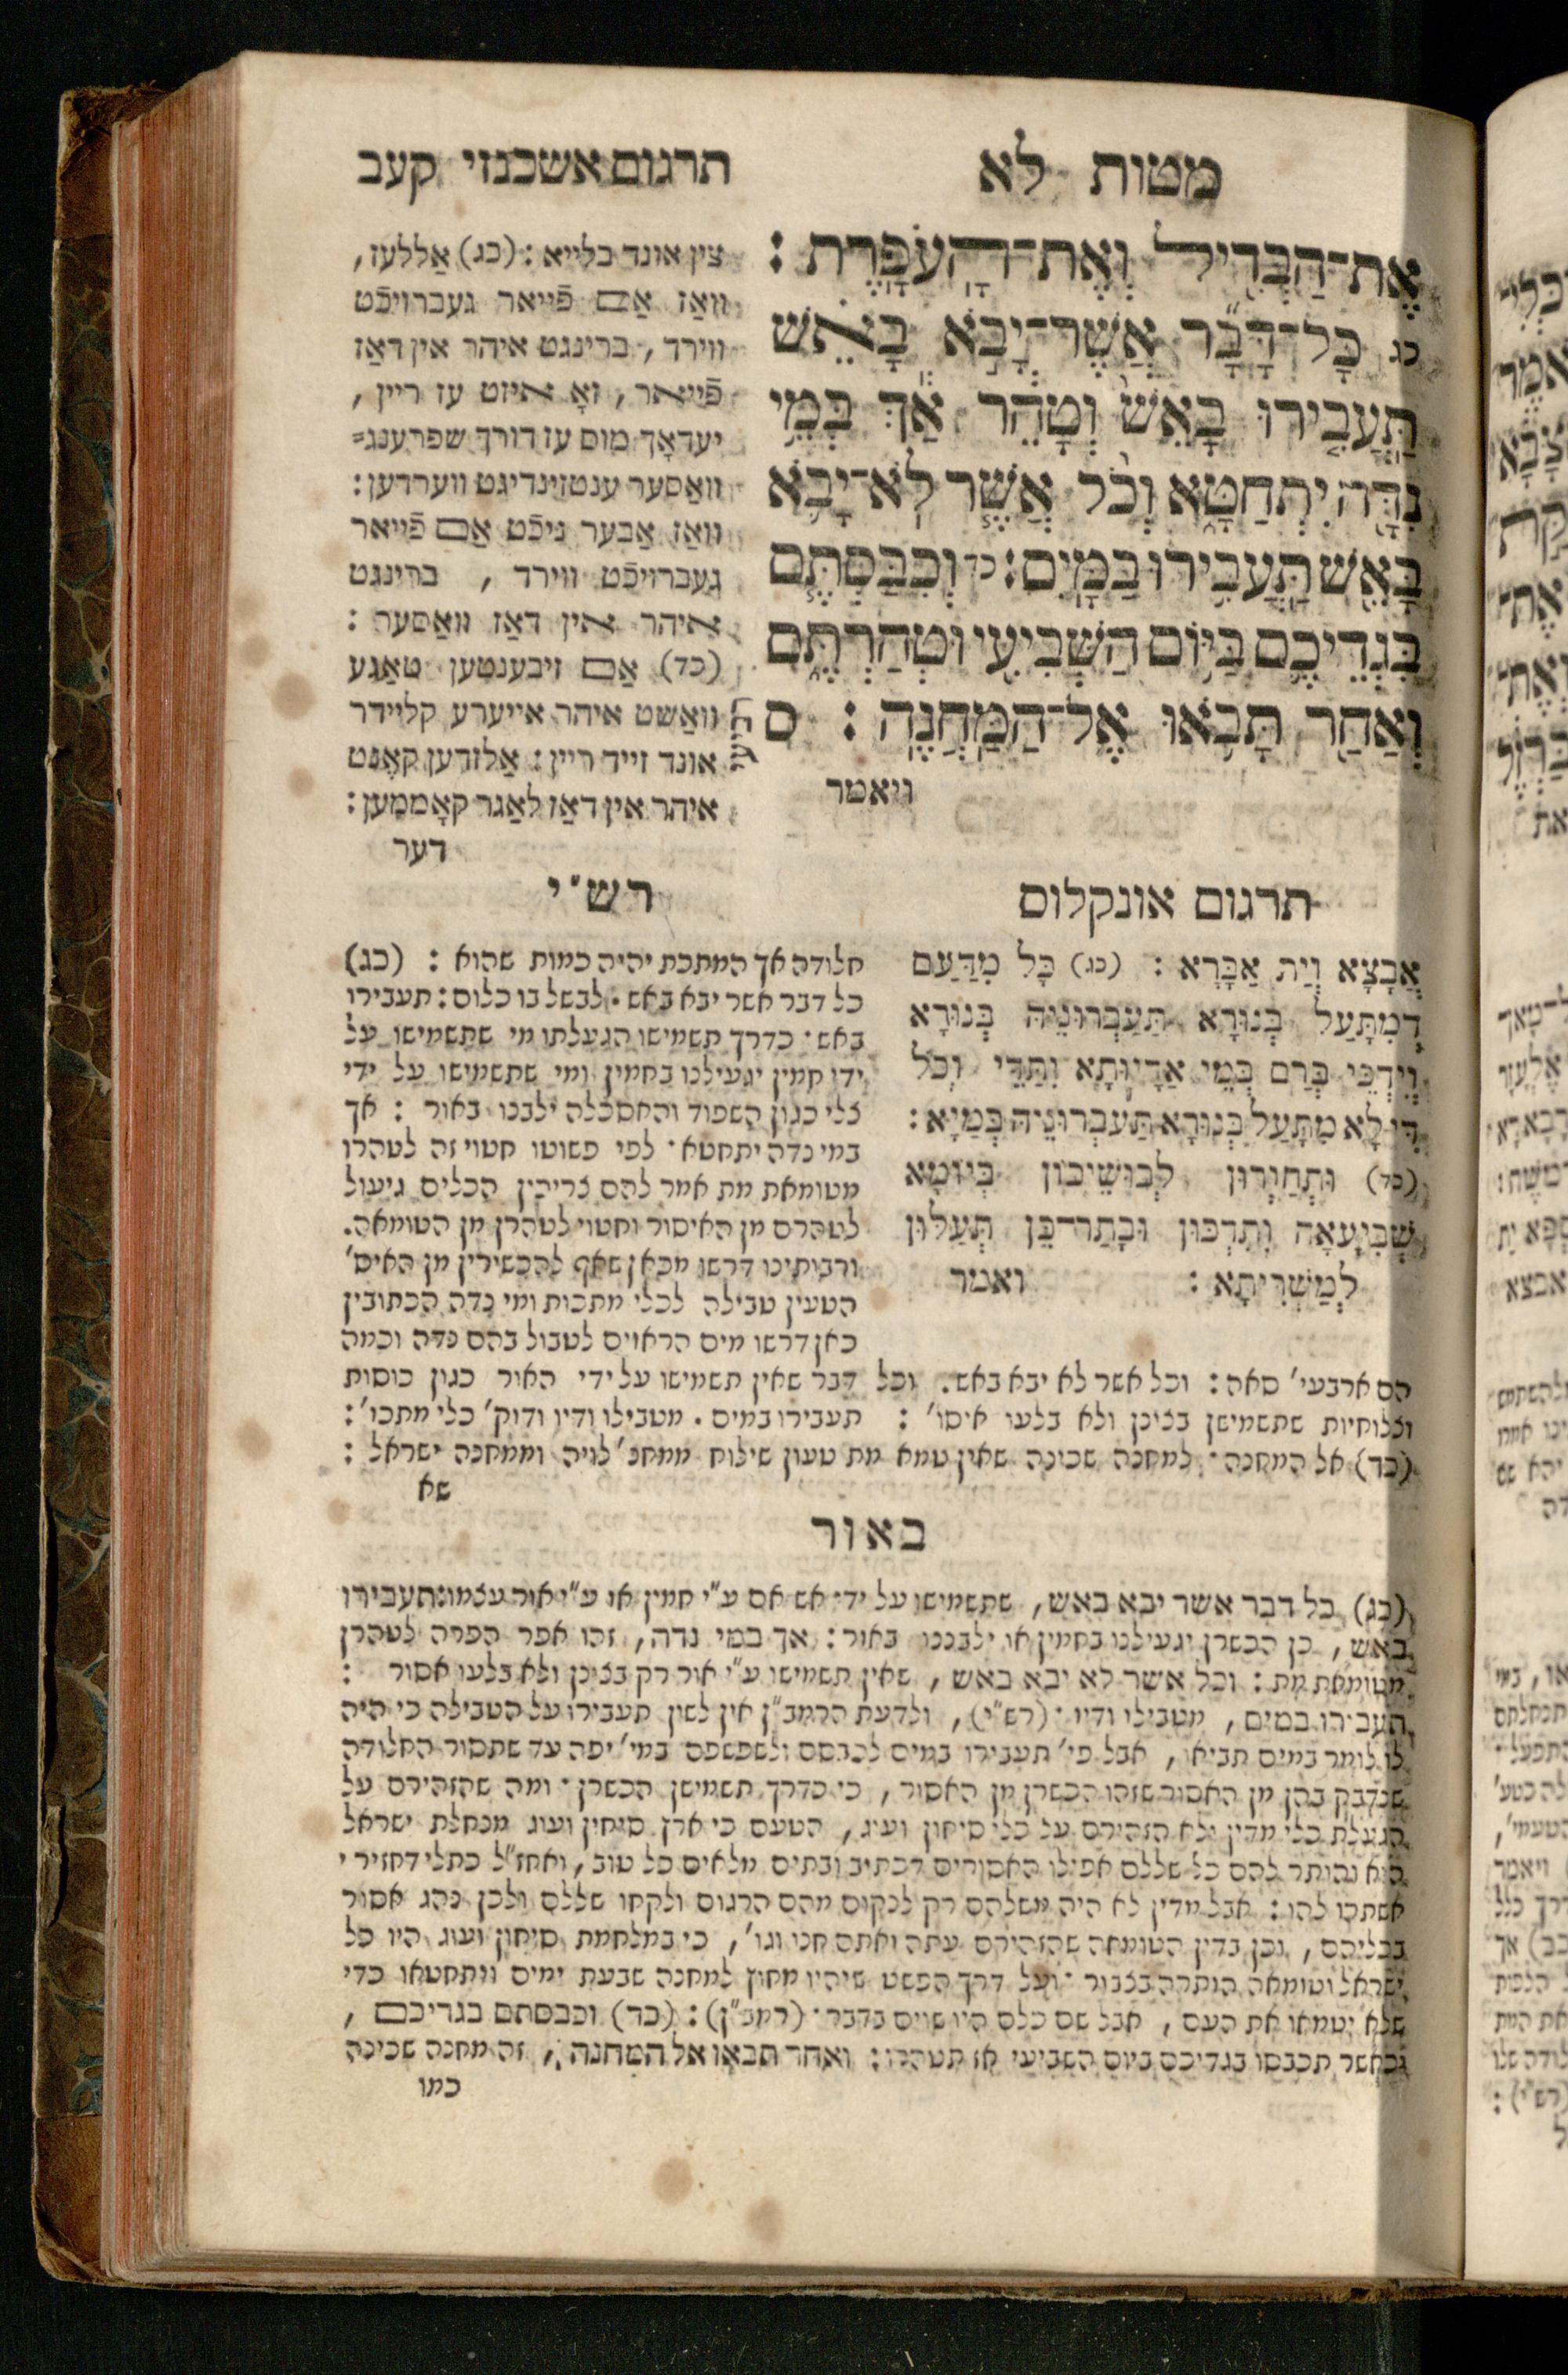 מטות לא
תרגום אשכנזי קעב
אֶת־הַבְּדִיל וְאֶת־הָעֹפָרֶת :
כג כָּל־דָּבָר אֲשֶׁר־יָבֹא בָאֵשׁ
תַּעֲבִירוּ בָאֵשׁ וְטָהֵר אַךְ בְּמֵי
נִדָּה יִתְחַטָּא וְכֹל אֲשֶׁר לֹא־יָבֹא
בָּאֵשׁ תַּעֲבִירוּ בַמָּיִם : כד וְכִבַּסְתֶּם
בִּגְדֵיכֶם בַּיּוֹם הַשְּׁבִיעִי וּטְהַרְתֶּם
וְאַחַר תָּבֹאוּ אֶל־הַמַּחֲנֶה : ס
ויאמר
צין אונד בלייא : (כג) אַללעז,
וואַז אַם פֿייאר געברויכֿט
ווירד, ברינגט איהר אין דאַז
פֿייאר, זאָ איזט עז ריין,
יעדאָך מוס עז דורך שפרענג=
וואַסער ענטזינדיגט ווערדען :
וואַז אַבער ניכֿט אַם פֿייאר
געברויכֿט ווירד, ברינגט
איהר אין דאַז וואַסער :
(כד) אַם זיבענטען טאַגע
וואַשט איהר אייערע קליידר
אונד זייד ריין : אַלזדען קאָנט
איהר אין דאַז לאַגר קאָממען :
דער
תרגום אונקלוס
אֲבָצָא וְיַת אַבָּרָא : (כג) כָּל מִדַּעַם
דְמִתָּעַל בְּנוּרָא תַּעַבְרוּנֵיהּ בְּנוּרָא
וְיִדְכֵּי בְּרַם בְּמֵי אַדָיוּתָא יִתַּדֵּי וְכֹל
דִּי לָא מִתָּעַל בְּנוּרָא תַּעַבְרוּנֵיהּ בְּמַיָא :
(כד) וּתְחַוְרוּן לְבוּשֵׁיכוֹן בְּיוֹמָא
שְׁבִיעָאָה וְתִדְכּוּן וּבָתַר־כֵּן תְּעַלוּן
לְמַשְׁרִיתָא : ואמר
רש״י
חלודה אך המתכת יהיה כמות שהוא : (כג)
כל דבר אשר יבא באש. לבשל בו כלום : תעבירו
באש. כדרך תשמישו הגעלתו מי שתשמישו על
ידי חמין יגעילנו בחמין ומי שתשמישו על ידי
צלי כגון השפוד והאסכלה ילבנו באור : אך
במי נדה יתחטא. לפי פשוטו חטוי זה לטהרו
מטומאת מת אמר להם צריכין הכלים גיעול
לטהרם מן האיסור וחטוי לטהרן מן הטומאה.
ורבותינו דרשו מכאן שאף להכשירין מן האיס׳
הטעין טבילה לכלי מתכות ומי נדה הכתובין
כאן דרשו מים הראוים לטבול בהם נדה וכמה
הם ארבעי׳ סאה : וכל אשר לא יבא באש. וכל דבר שאין תשמישו על ידי האור כגון כוסות
וצלוחיות שתשמישן בצונן ולא בלעו איסו׳ : תעבירו במים. מטבילו ודיו ודוק׳ כלי מתכו׳ :
(כד) אל המחנה. למחנה שכינה שאין טמא מת טעון שילוח ממחנ׳ לויה וממחנה ישראל :
שא
באור
(כג) כל דבר אשר יבא באש, שתשמישו על ידי אש אם ע״י חמין או ע״י אור עצמו : תעבירו
באש, כן הכשרן יגעילנו בחמין או ילבננו באור : אך במי נדה, זהו אפר הפרה לטהרן
מטומאת מת : וכל אשר לא יבא באש, שאין תשמישו ע״י אור רק בצונן ולא בלעו אסור :
תעבירו במים, מטבילו ודיו (רש״י), ולדעת הרמב״ן אין לשון תעבירו על הטבילה כי היה
לו לומר במים תביאו, אבל פי׳ תעבירו במים לכבסם ולשפשפם במי׳ יפה עד שתסור החלודה
שנדבק בהן מן האסור שזהו הכשרן מן האסור, כי כדרך תשמישן הכשרן. ומה שהזהירם על
הגעלת כלי מדין ולא הזהירם על כלי סיחון ועוג, הטעם כי ארץ סיחון ועוג מנחלת ישראל
היא והותר להם כל שללם אפילו האסורים דכתיב ובתים מלאים כל טוב, ואחז״ל כתלי דחזיר י
אשתרו להו : אבל מדין לא היה משלהם רק לנקום מהם הרגום ולקחו שללם ולכן נהג אסור
בכליהם, וכן בדין הטומאה שהזהירם עתה ואתם חנו וגו׳, כי במלחמת סיחון ועוג היו כל
ישראל וטומאה הותרה בצבור. ועל דרך הפשט שיהיו מחוץ למחנה שבעת ימים ויתחטאו כדי
שלא יטמאו את העם, אבל שם כלם היו שוים בדבר. (רמב״ן) : (כד) וכבסתם בגדיכם,
וכאשר תכבסו בגדיכם ביום השביעי אז תטהרו : ואחר תבאו אל המחנה, זה מחנה שכינה
כמו